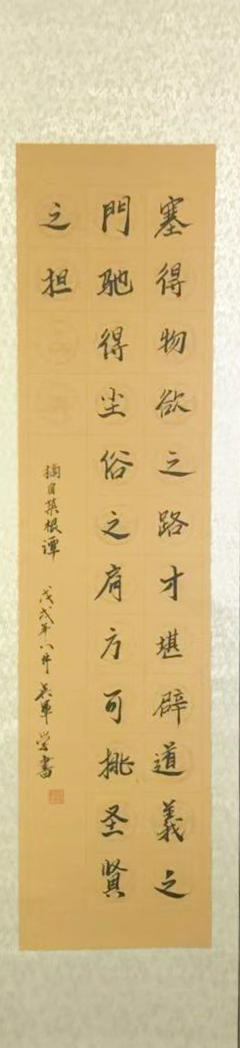 塞得物欲之路才堪辟道義之
門馳得尘俗之肩方可挑圣賢
之担
摘自菜根谭
戊戌年八月吴軍学書